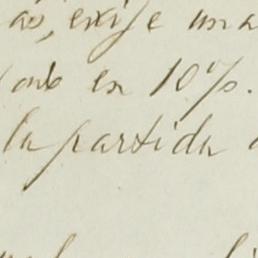 as, exije una
en 10%.
la partida